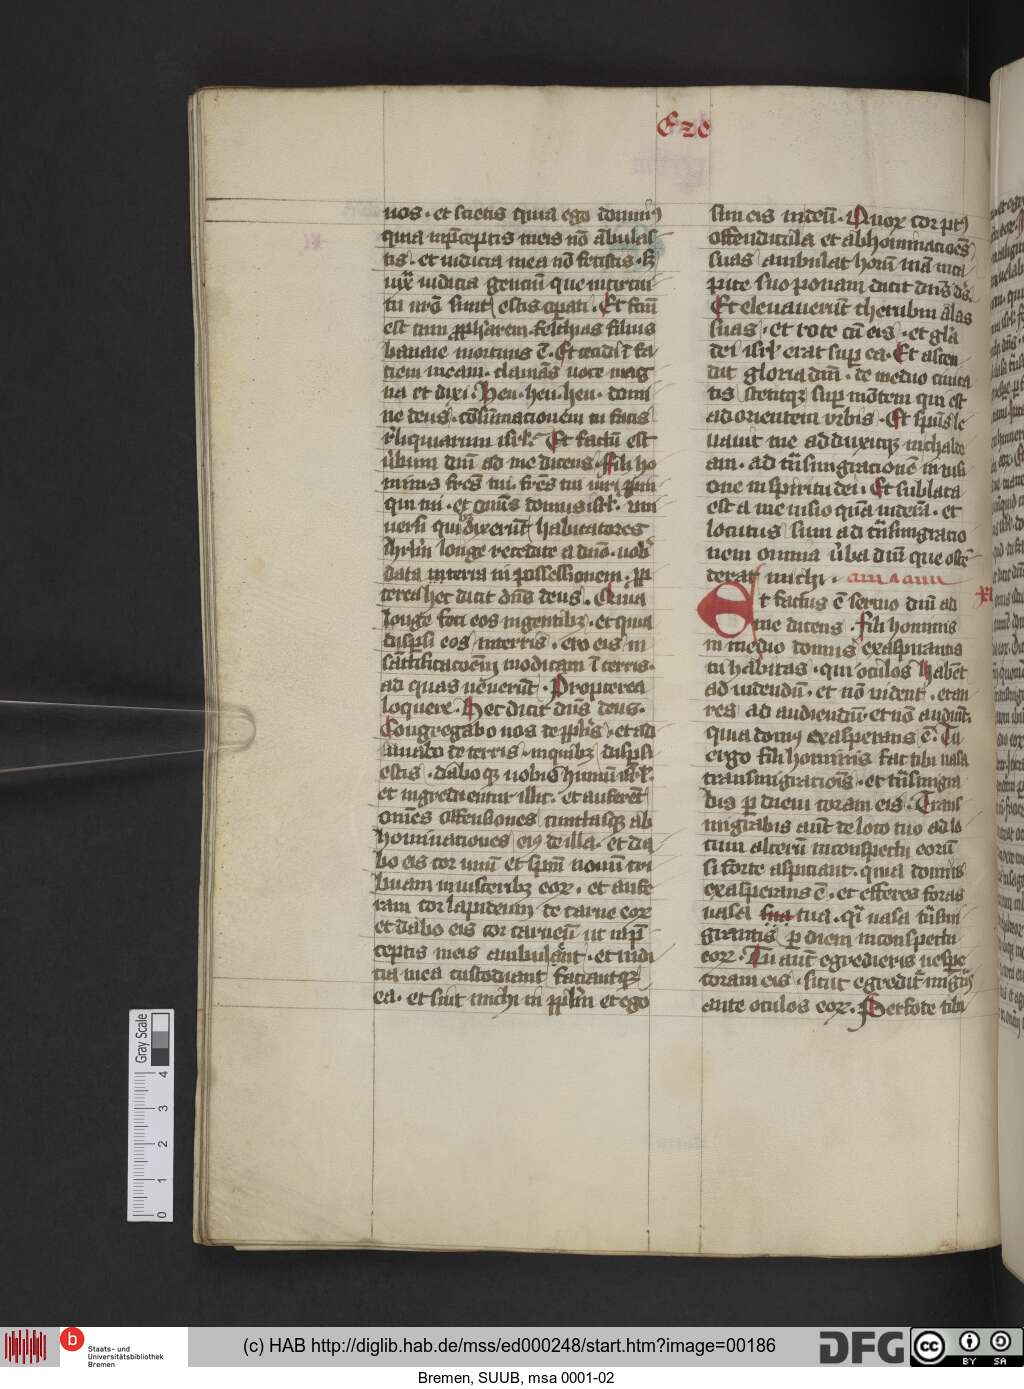 Eze
uos · et scietis quia ego dominꝰ
quia in p̄ceptis meis nō ābulas
tis · et iudicia mea nō fecistis · sꝫ
iuxͣ iudicia gentiū que in circui
tu ur̄o sunt estis oꝑati · Et fcm̄
est cum ꝓph̄arem · felthias filius
banaie mortuus ē · Et cecidi ī fa
ciem meam · clamās uoce mag
na et dixi · Heu · heu · heu · domi
ne deus · cōsūmacionem tu facis
reliquiarum isrl̄ · Et factū est
ūbum dn̄i ad me dicens · Fili ho
minis fr̄es tui · fr̄es tui uiri ꝓpin
qui tui · et om̄is domus isrl̄ · uni
uersi quibꝰ dixerūt habitatores
ihrl̄m longe recedite a dn̄o · nob̄
data interra in possessionem · ꝓp
terea hec dicit dn̄s deus · Quia
longe feci eos in gentibꝫ · et quia
dispersi eos in terris · ero eis in
sāctificacōem modicam ī terris ·
ad quas uenerūt · Propterea
loquere · Hec dicit dn̄s deus ·
Congregabo uos de pp̄lis · et ad
unabo de terris · in quibꝫ dispersi
estis · dabo qꝫ uobis humū isrl̄ ·
et ingredientur illuc · et auferēt
om̄es offensiones cunctasqꝫ ab
hominationes eiꝰ de illa · et da
bo eis cor unū et spm̄ nouū tri
buam in uisceribꝫ eoꝝ · et aufe
ram cor lapideum de carne eoꝝ
et dabo eis cor carneū ut in p̄
ceptis meis ambulent · et iudi
cia mea custodiant faciantqꝫ
ea · et sint michi in pp̄lm et ego
sim eis in deū · Quoꝝ cor ptꝰ
offendicula et abhominacōes
suas ambulat horū uiā in ca
pite suo ponam dicit dn̄s ds̄ ·
Et eleuauerūt cherubin alas
suas · et rote cū eis · et gl̄a
dei isrl̄ erat suꝑ ea · Et ascen
dit gloria dn̄i · de medio ciuita
tis stetitqꝫ suꝑ mōtem qui est
ad orientem urbis · Et spūs le
uauit me adduxitqꝫ in chalde
am · ad trāsmigracionē in uisi
one in spiritu dei · Et sublata
est a me uisio quā uiderā · et
locutus sum ad trāsmigracio
nem omnia ūba dn̄i que ostē
derat michi ·
Et factus ē sermo dn̄i ad
me dicens · fili hominis
in medio domꝰ exasperantis
tu habitas · qui oculos habent
ad uidendū · et nō uident · et au
res ad audiendū · et nō audiūt ·
quia domꝰ exasperans ē · Tu
ergo fili hominis fac tibi uasa
transmigracionis · et trāsmigra
bis ꝑ diem coram eis · Trans
migrabis aūt de loco tuo ad lo
cum alterū in conspectu eorū
si forte aspiciant · quia domus
exasperans ē · et efferes foras
uasa tua · qͣsi uasa trāsmi
grantis ꝑ diem in conspectu
eoꝝ · Tu aūt egredieris uespe
coram eis · sicut egreditur migrās
ante oculos eoꝝ · Perfode tibi
XII
Gray Scale
0 1 2 3 4
b Staats- und
Universitätsbibliothek
Bremen
(c) HAB http://diglib.hab.de/mss/ed000248/start.htm?image=00186
DFG
cc BY SA
Bremen, SUUB, msa 0001-02